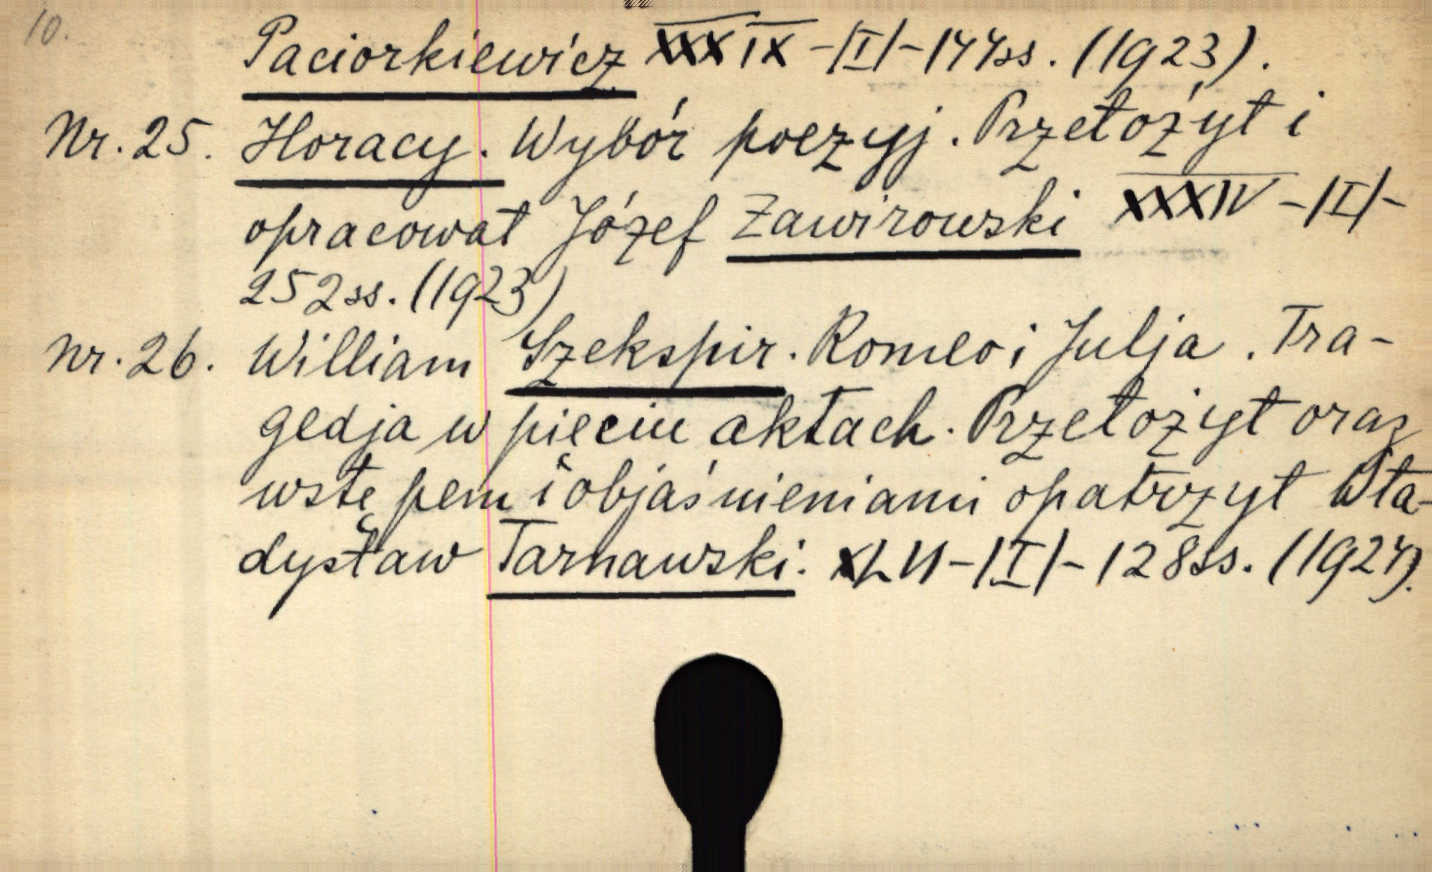 10.
Paciorkiewicz XXXIX -|I|-144ss. (1923).
Nr. 25. Horacy. Wybór poezyj. Przełożył i
opracował Józef Zawirowski XXXIV -|I|-
252ss. (1923)
Nr. 26. William Szekspir. Romeo i Julja. Tra-
gedja w pięciu aktach. Przełożył oraz
wstępem i objaśnieniami opatrzył Wła-
dysław Tarnawski. XLVI-|I|-128ss. (1924).